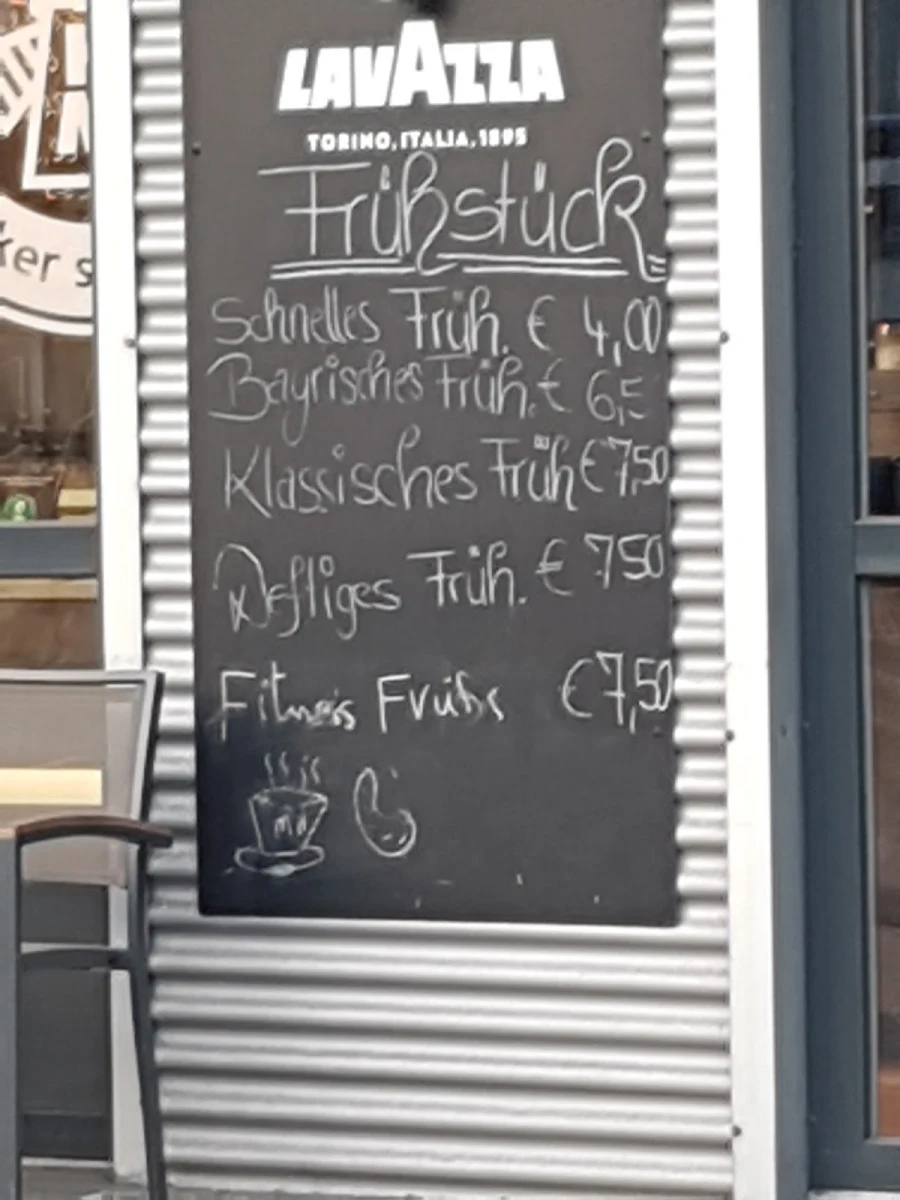 LAVAZZA
TORINO, ITALIA, 1895
Frühstück
Schnelles Früh. € 4,00
Bayrisches Früh. € 6,5
Klassisches Früh € 7,50
Deftiges Früh. € 750
Fitness Frühs € 7,50
ker s